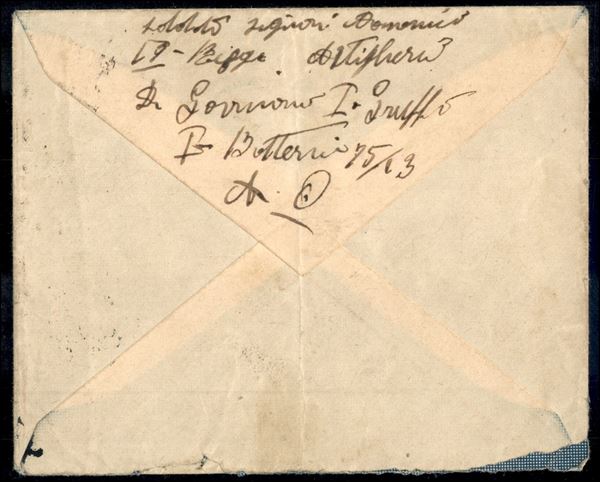 soldato Signori Domenico
Artiglieria
Da I- Gruppo
I- Batteria 75/13
A. O